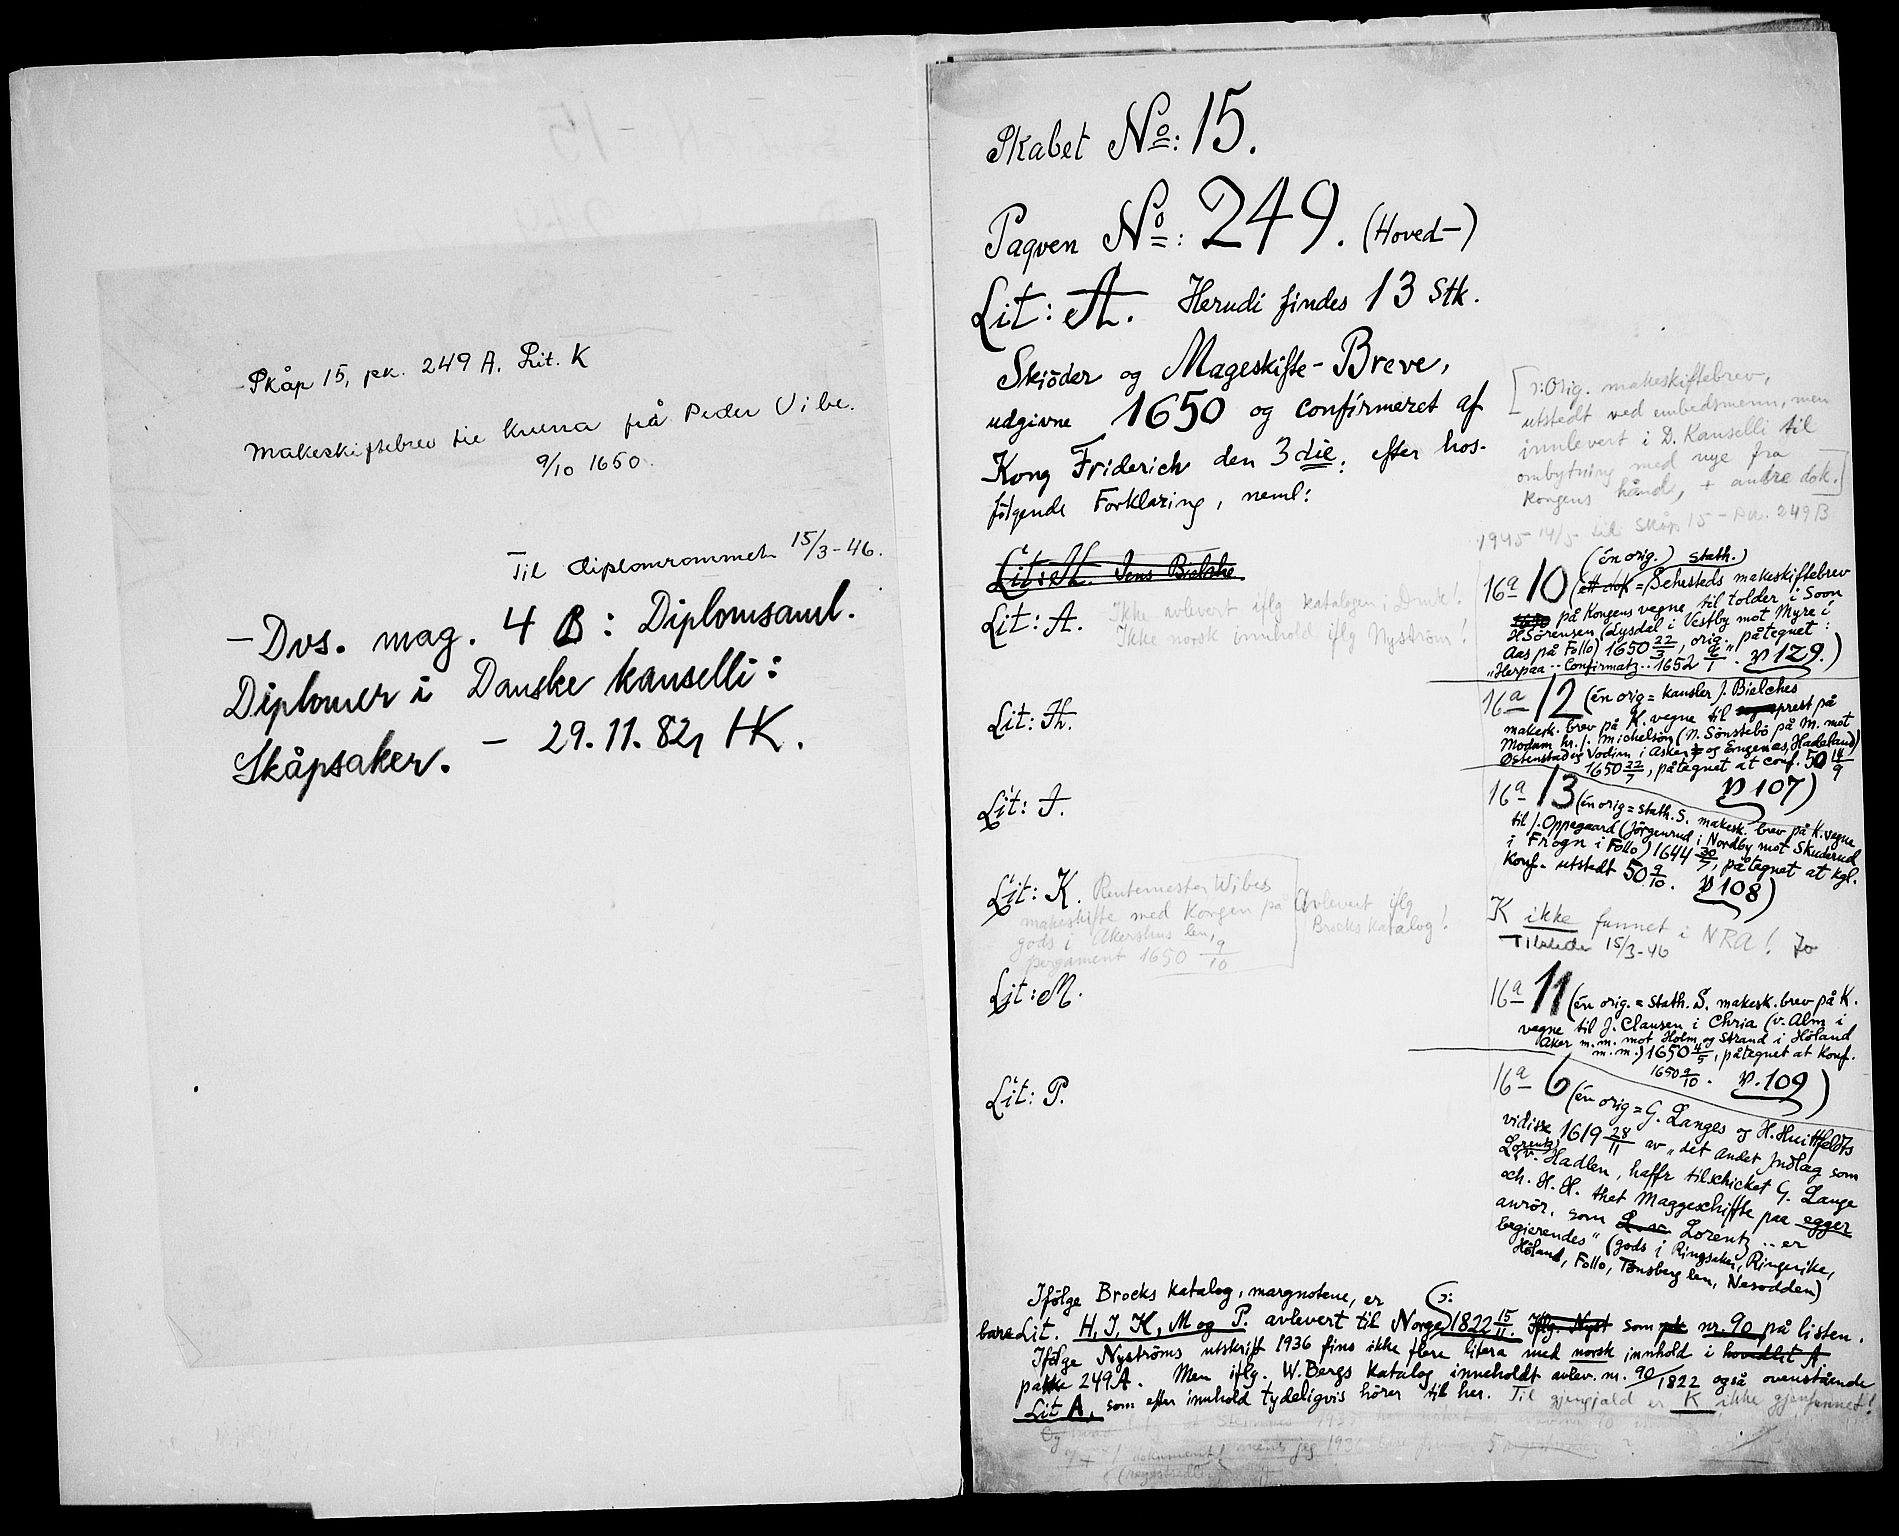 Skåp 15, pk. 249 A. Lit. K
Makeskiftebrev til kuna frå Peder Vibe.
9/10 1650.
Til diplomrommet 15/3-46.
- Dvs. mag. 4 B: Diplomsaml.
Diplomer i Danske kanselli:
Skåpsaker. - 29.11.82, HK.
Skabet No: 15.
Paqven No: 249. (Hoved-)
Lit: A. Herudi findes 13 Stk.
Skiöder og Mageskifte-Breve,
udgivne 1650 og confirmeret af
Kong Friderich den 3die: efter hos-
følgende Forklaring, neml:
[ɔ: Orig. makeskiftebrev,
utstedt ved embedsmenn, men
innlevert i D. Kanselli til
ombytning med nye fra
Kongens hånd, + andre dok.]
1945 14/5 til Skåp 15 - Pk. 249B
Lit: H. Jens Bielche
Lit: A. Ikke avlevert iflg katalogen i Dmk!
Ikke norsk innhold iflg Nyström!
Lit: H.
Lit: I.
Lit: K. Rentemester Wibes
makeskifte med Kongen på
gods i Akershus len,
pergament 1650 9/10
Avlevert iflg
Brocks katalog!
Lit: M.
Lit: P.
16a 10 (én orig.) stath.)
(ett dok = Sehesteds makeskiftebrev
på Kongens vegne til tolder i Soon
H Sörensen (Lysdal i Vestby mot Myre i
Aas på Follo) 1650 22/3, orig. påtegnet:
"Herpaa .. Confirmatz .. 1652 6/1. p 129.)
16a 12 (én orig = kansler J. Bielches
makesk. brev på K. vegne til prest på
Modum hr. J. Michelsøn (N. Sönstebö på M. mot
Østenstad og Vodim i Asker og Engenæs, Hadeland)
1650 22/7, påtegnet at conf. 50 14/9
p 107)
16a 13 (én orig = stath. S. makesk. brev på K. vegne
til J. Oppegaard (Jörgenrud i Nordby mot Skuderud
i Frogn i Follo) 1644 30/7, påtegnet at kgl.
Konf. utstedt 50 9/10. p 108)
K ikke funnet i NRA! Jo
Tilstede 15/3-46
16a 11 (én orig. = stath. S. makesk. brev på K.
vegne til J. Clausen i Chria (v. Alm i
Aker m.m. mot Holm og Strand i Höland
m.m.) 1650 4/5, påtegnet at konf.
1650 9/10. p. 109)
16a 6 (én orig = G. Langes og H. Huitfeldts
vidisse 1619 28/11 av "det andet Indlæg som
Lorentz v. Hadlen, haffr tilschicket G. Lange
och. H. H. thet Maggeschiffte paa egger
anrör, som Lorentz .. er
begierendes" (gods i Ringsaker, Ringerike,
Höland, Follo, Tønsberg len, Nesodden)
Ifölge Brocks katalog, margnotene, er ɔ:
bare Lit. H, I, K, M og P. avlevert til Norge 1822 15/11. Iflg. Nyst som pk nr. 90 på listen.
Ifölge Nyströms utskrift 1936 fins ikke flere litera med norsk innhold i hovedlit A
pakke 249A. Men iflg. W. Bergs katalog inneholdt avlev. nr. 90/1822 også ovenstående
Lit A, som efter innhold tydeligvis hører til her. Til gjengjald er K ikke gjenfunnet!
Og
1 dokument! mens jeg 1936